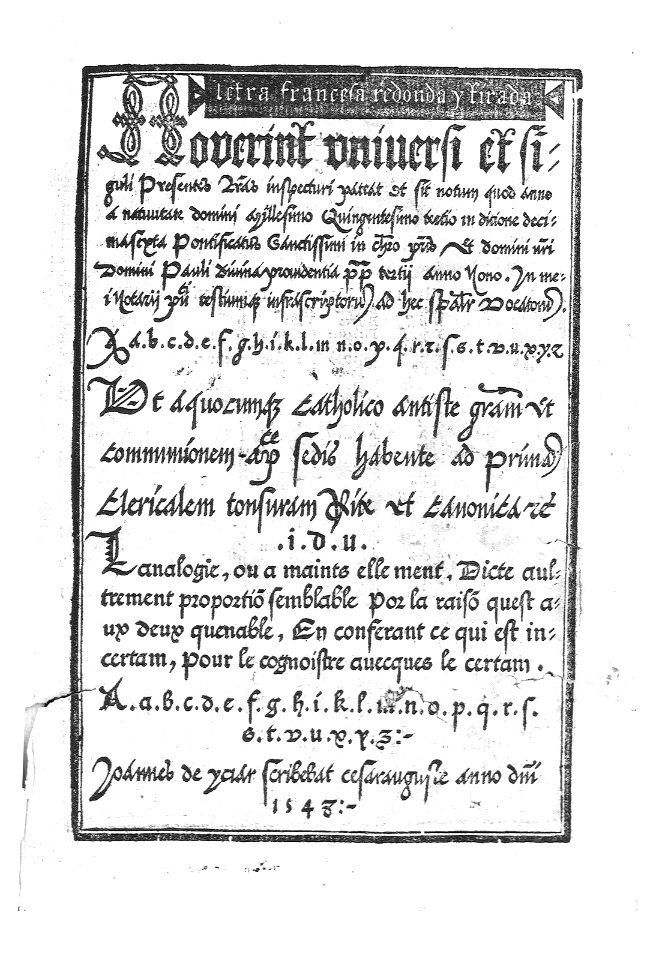 letra francesa redonda y tirada
Noverint vniuersi et si-
guli Presentes lr̃as inspecturi pateat et sit notum quod anno
a natiuitate domini Millesimo Quingentesimo tertio in dicione deci-
masexta Pontificatus Sanctissimi in chr̃o pr̃is et domini nr̃i
Domini Pauli diuina prouidentia pp tertij anno Nono. In me-
i Notarij testiumq; infrascriptorũ ad hec spãlr Vocatorũ.
A a.b.c.d.e.f.g.h.i.k.l.m n.o.p.q.r.z.s.s.t.v.u.x.y.z
Et a quocumq; Catholico antiste grãm et
communionem aplice sedis habente ad primã
Clericalem tonsuram Rite et Canonica
.i.d.u.
Lanalogie, ou a maints elle ment, Dicte aul-
trement proportiõ semblable Por la raisõ quest a-
ux deux quenable, En conferant ce qui est in-
certam, Pour le cognoistre auecques le certam.
A.a.b.c.d.e.f.g.h.i.k.l.m.n.o.p.q.r.s.
s.t.v.u.x.y.z:-
Joannes de yciar scribebat cesarauguste anno dñi
1543:-